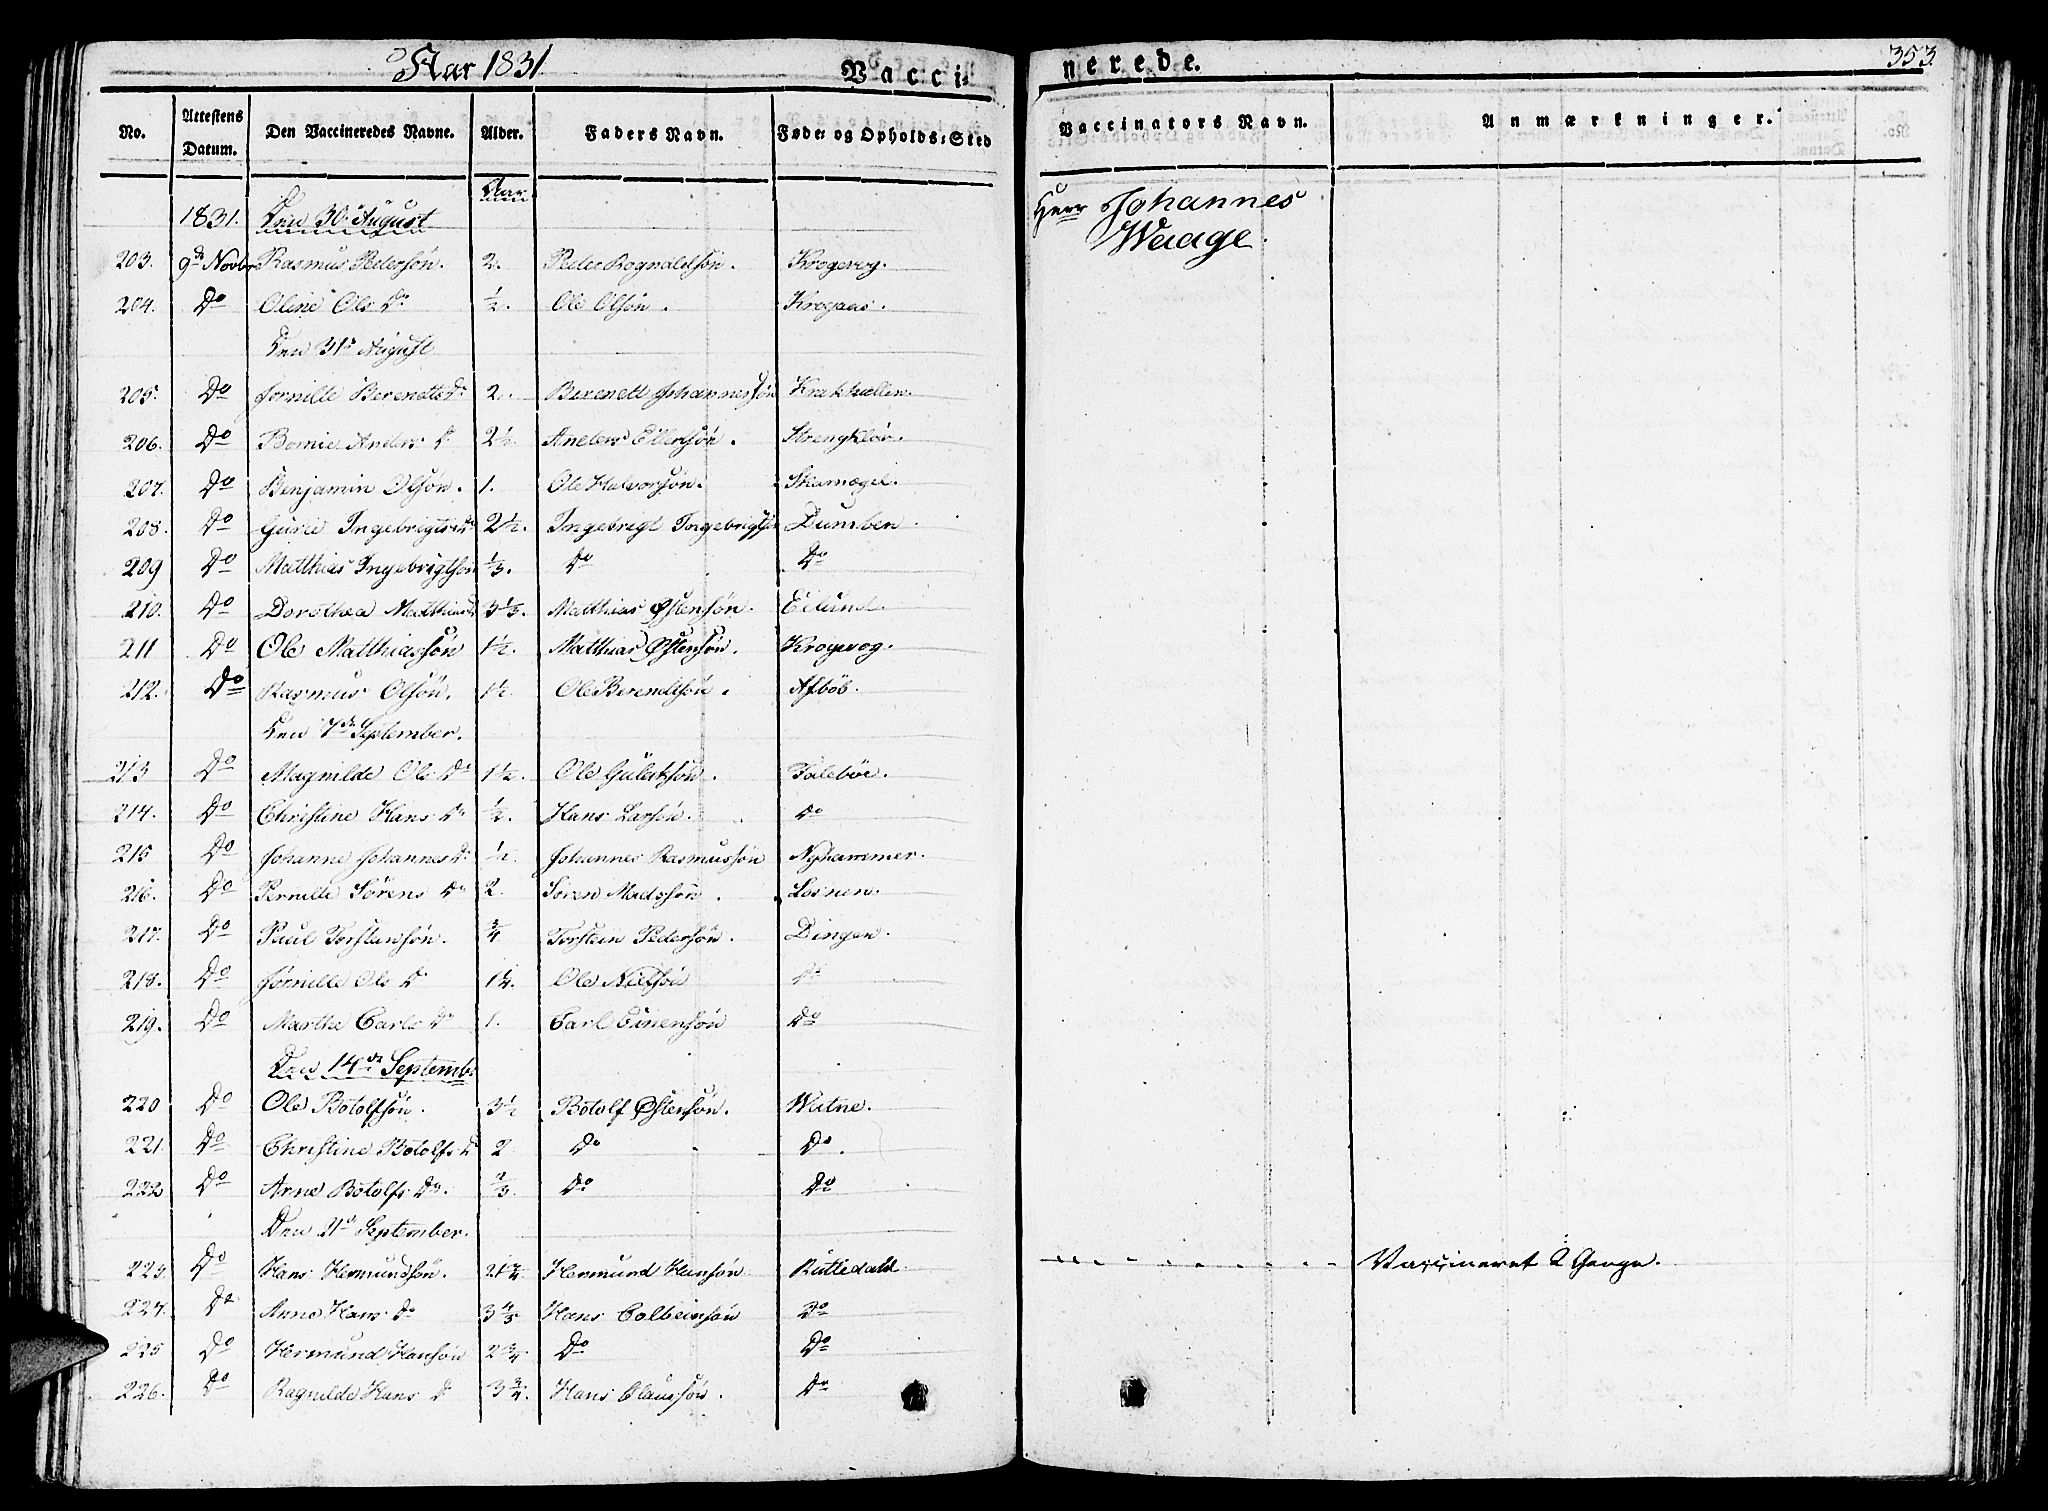 Aar 1831 Vacci- nerede. 353
No. Attestens Datum. Den Vaccineredes Navne. Alder. Faders Navn. Føde- og Opholds-Sted Vaccinators Navn. Anmærkninger.
Aar
1831. Den 30. August Herr Johannes
203. 9de Novbr Rasmus Pedersön. 2. Peder Rognaldsön. Krogevog. Waage.
204. Do Oline Ols Dr ½. Ole Olsön. Krogaas.
Den 31te August
205. Do Jornille Berendts Dr 2. Berenett Johannessön Krakhællen.
206. Do Anders Dr 2½. Anders Ellertsön.
207. Do Benjamin Olsön. 1. Ole Halvorsön.
208. Do Gurie Ingebrigts Dr 2½. Ingebrigt Ingebrigtsön Dumben
209 Do Matthias Ingebrigtsön ⅓. Do Do
210. Do Dorothea Matthias Dr 3⅓. Matthias Østensön. Eilund.
211 Do Ole Matthiassön 1½. Matthias Østensön. Krogevog.
212. Do Rasmus Olsön. 1½. Ole Berendtsön. Afböb.
Den 7de September.
213 Do Magnilde Ols Dr 1½. Ole Gulaksön. Taleböe.
214. Do Christine Hans Dr ½. Hans Larsön. Do
215 Do Johanne Johannes Dr ½. Johannes Rasmussön Nyhammer.
216. Do Pernille Sörens Dr 2. Sören Madssön. Losnen.
217. Do Paul Torstensön. ¾ Torstein Pedersön. Dingen.
218. Do Jörnille Ols Dr 1¼. Ole Nielsön Do
219. Do Marthe Carls Dr 1. Carl Einensön Do
Den 14de Septembr
220 Do Ole Botolfsön. 3½ Botolf Østensön. Watne.
221. Do Christine Botolfs Dr 2 Do Do.
222 Do Arne Botolfs Dr. ⅔. Do Do
Den 21de September.
223. Do Hans Hermundsön. 2¼. Hermund Hansön Rutledald. Vaccineret 2 Gange.
224. Do Anne Hans Dr 3⅘ Hans Colbeinsön Do
225 Do Hermund Hansön 2¾. Do Do
226. Do Ragnilde Hans Dr 3¾. Hans Claussön. Do